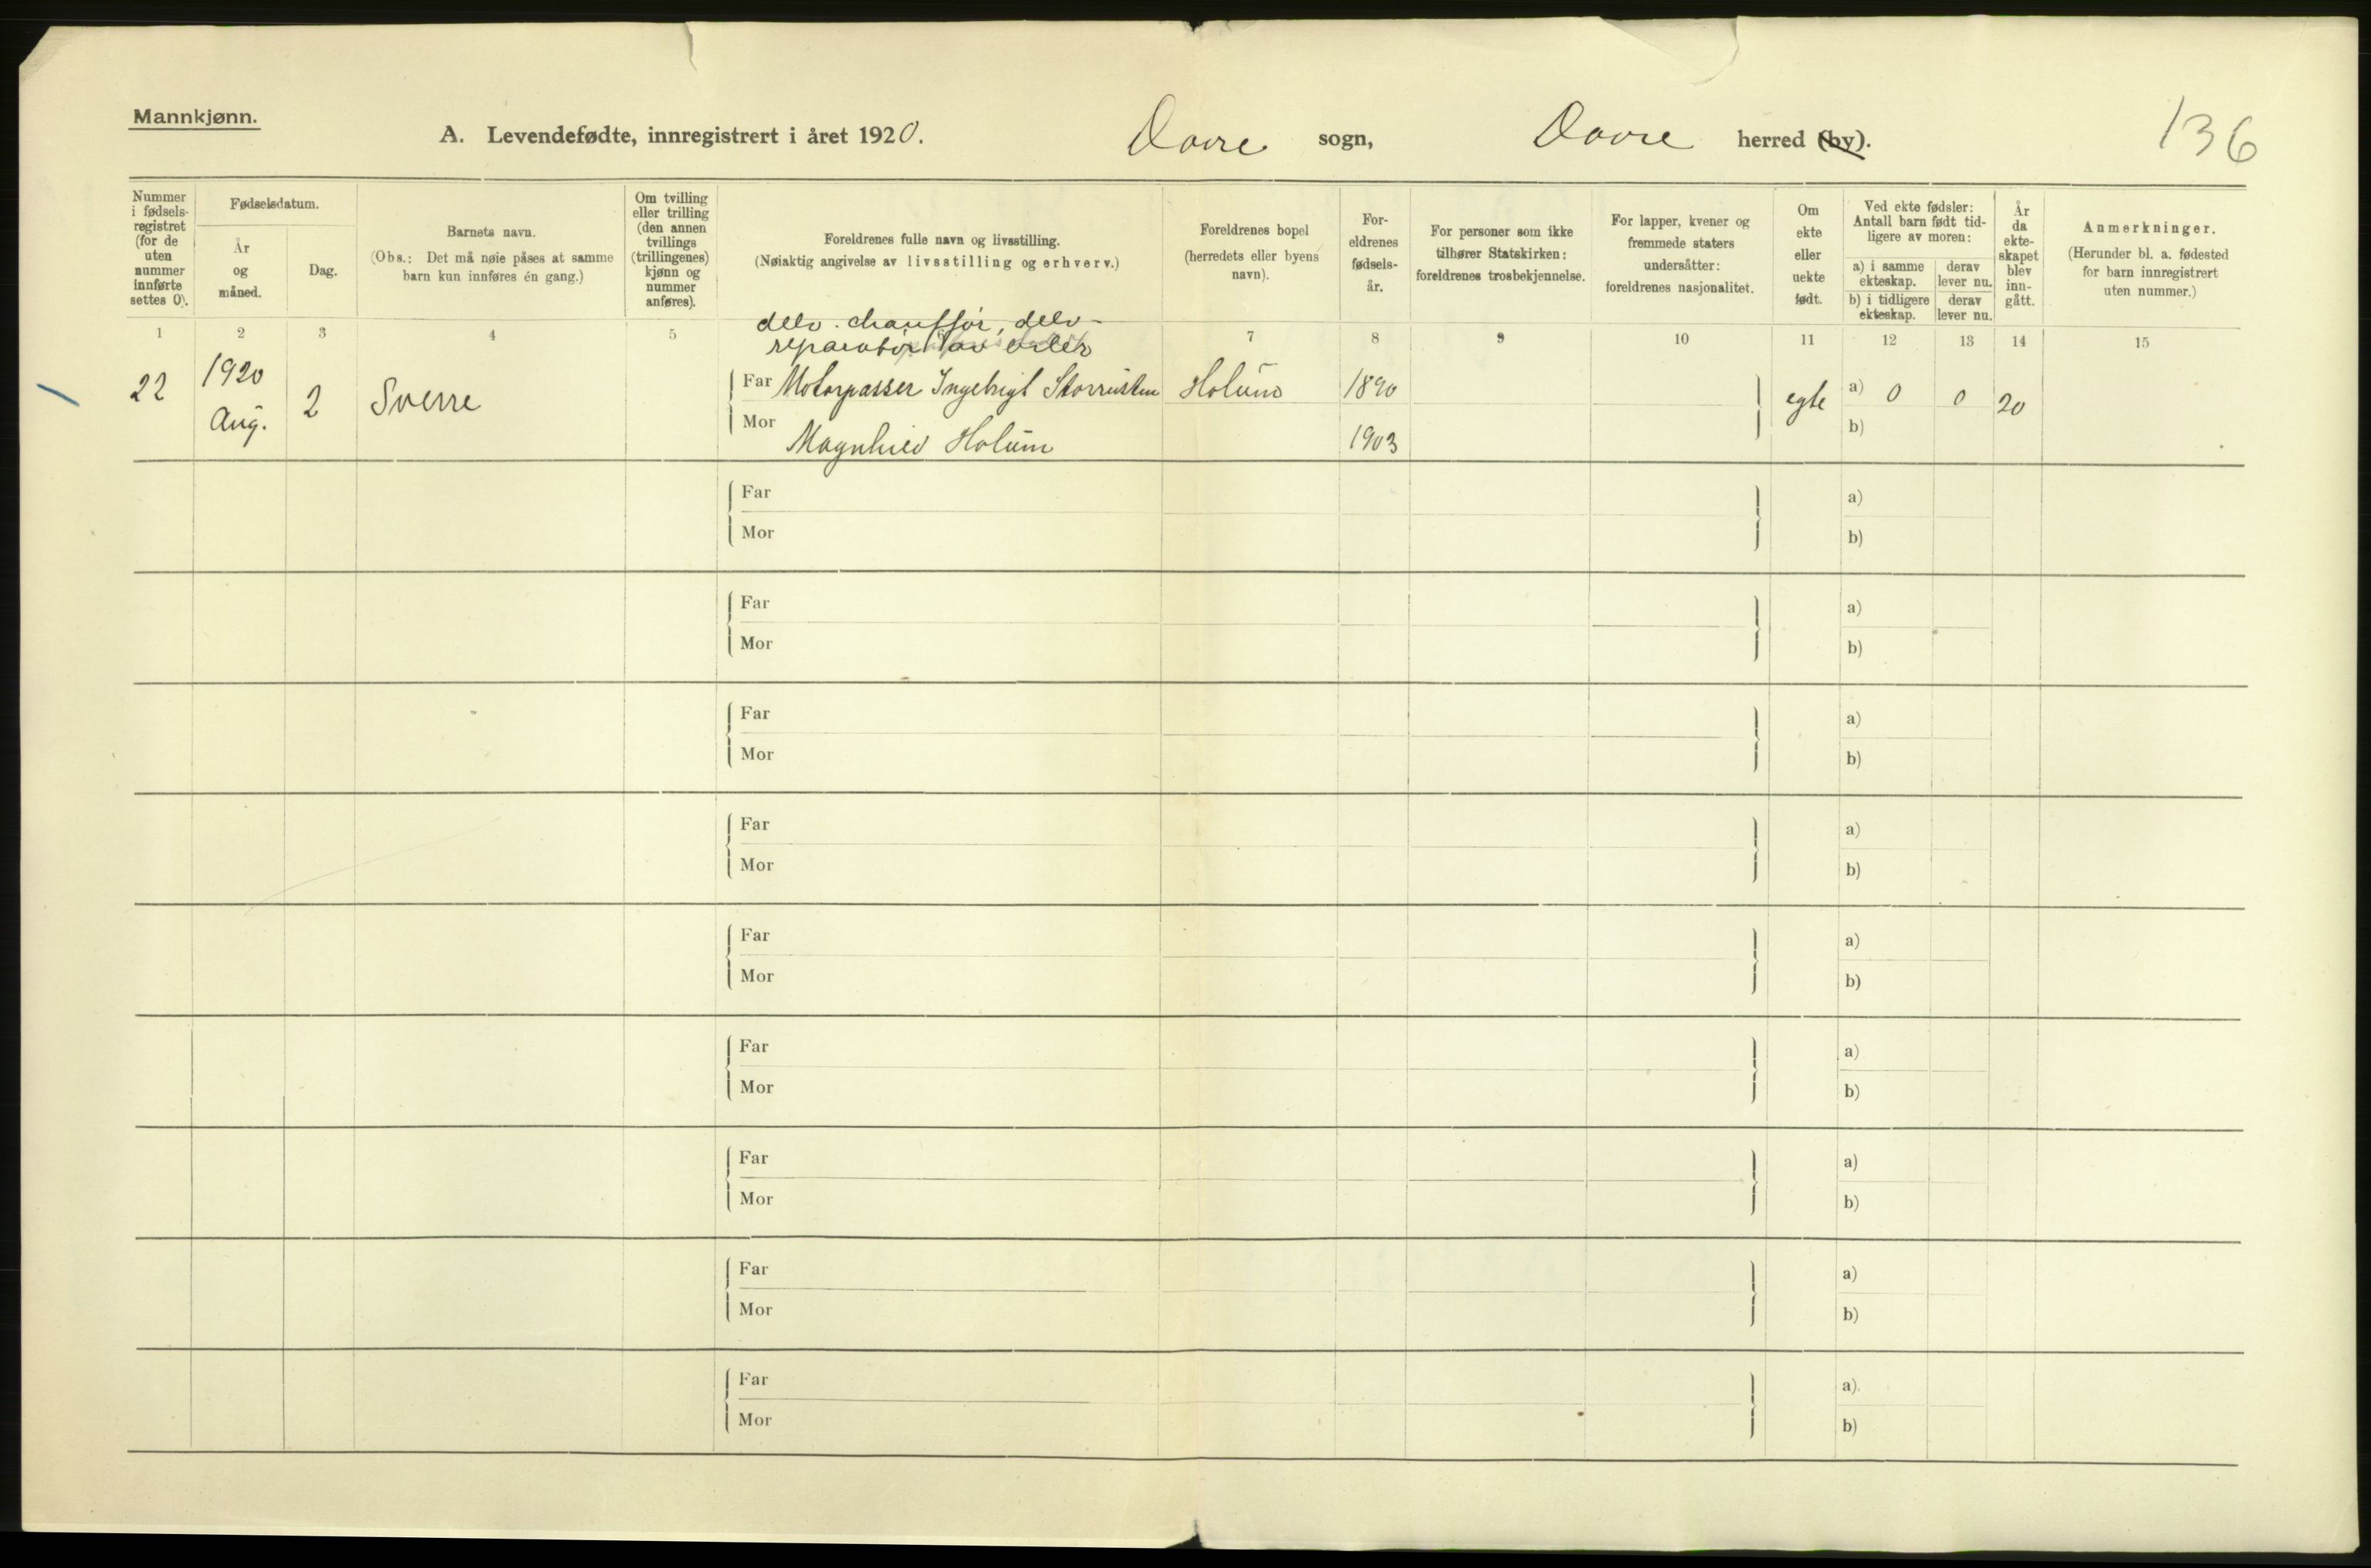 Mannkjønn.
A. Levendefødte, innregistrert i året 1920. Dovre sogn, Dovre herred (by). 136
Nummer
i fødsels-
registret
(for de
uten
nummer
innførte
settes 0).
Fødselsdatum.
År
og
måned.
Dag.
Barnets navn.
(Obs.: Det må nøie påses at samme
barn kun innføres én gang.)
Om tvilling
eller trilling
(den annen
tvillings
(trillingenes)
kjønn og
nummer
anføres).
Foreldrenes fulle navn og livsstilling.
(Nøiaktig angivelse av livsstilling og erhverv.)
Foreldrenes bopel
(herredets eller byens
navn).
For-
eldrenes
fødsels-
år.
For personer som ikke
tilhører Statskirken:
foreldrenes trosbekjennelse.
For lapper, kvener og
fremmede staters
undersåtter:
foreldrenes nasjonalitet.
Om
ekte
eller
uekte
født.
Ved ekte fødsler:
Antall barn født tid-
ligere av moren:
a) i samme
ekteskap.
derav
lever nu.
b) i tidligere
ekteskap.
derav
lever nu.
År
da
ekte-
skapet
blev
inn-
gått.
Anmerkninger.
(Herunder bl. a. fødested
for barn innregistrert
uten nummer.)
1 2 3 4 5 7 8 9 10 11 12 13 14 15
delv. chauffør, delv-
reparatør av biler
22
1920
Aug.
2
Sverre
Far Motorpasser Ingebrigt Storrusten
Mor
Magnhild Holum
Holum
1890
1903
egte
a) 0 0
b)
20
Far a)
Mor b)
Far a)
Mor b)
Far a)
Mor b)
Far a)
Mor b)
Far a)
Mor b)
Far a)
Mor b)
Far a)
Mor b)
Far a)
Mor b)
Far a)
Mor b)